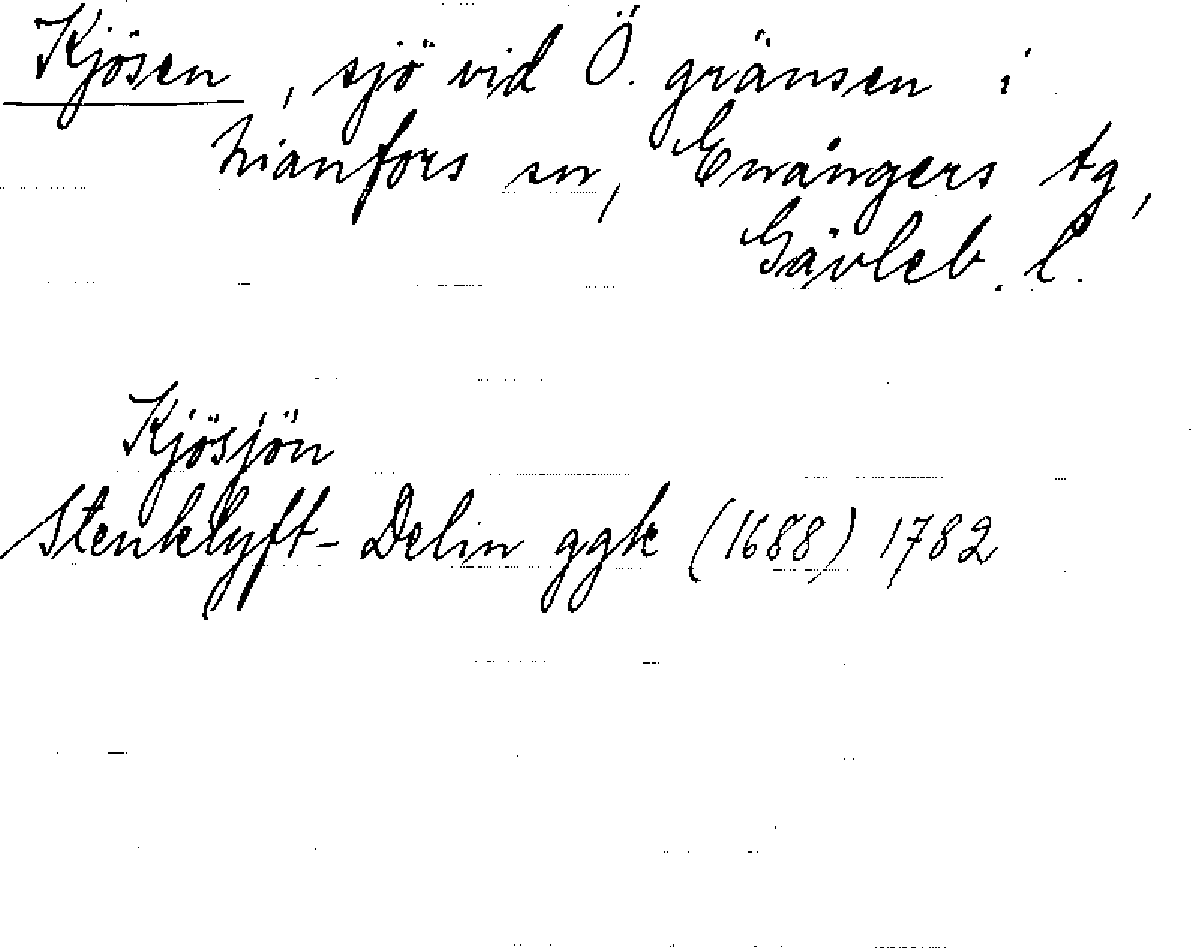 Kjösen, sjö vid Ö. gränsen i
Nianfors sn, Enångers tg,
Gävleb. l.
Kjösjön
Stenklyft-Delin ggk (1688) 1782